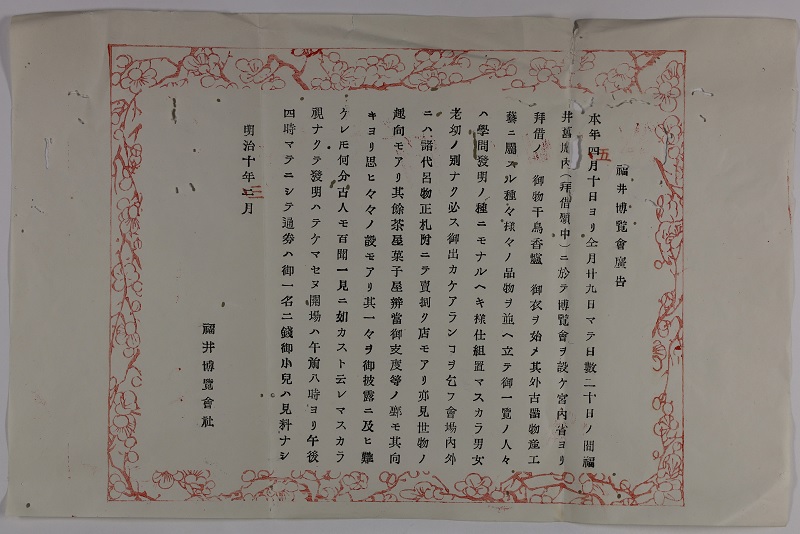 福井博覽會廣告
本年四五月十日ヨリ仝月廿九日マテ日數二十日ノ間福
井舊城內(拜借願中)ニ於テ博覽會ヲ設ケ宮內省ヨリ
拜借ノ 御物千鳥香爐 御衣ヲ始メ其外古器物產工
藝ニ屬スル種々樣々ノ品物ヲ並ヘ立テ御一覽ノ人々
ハ學問發明ノ種ニモナルヘキ樣仕組置マスカラ男女
老幼ノ別ナク必ス御出カケアランヿヲ乞フ會場內外
ニハ諸代呂物正札附ニテ賣捌ク店モアリ亦見世物ノ
趣向モアリ其餘茶屋菓子屋辨當御支度等ノ鄽モ其向
キヨリ思ヒ々々ノ設モアリ其一々ヲ御披露ニ及ヒ難
ケレ𪜈何分古人モ百聞一見ニ如カスト云レマスカラ
視ナクテ發明ハテケマセヌ開場ハ午前八時ヨリ午後
四時マテニシテ通券ハ御一名二錢御小兒ハ見料ナシ
明治十年三月
福井博覽會社